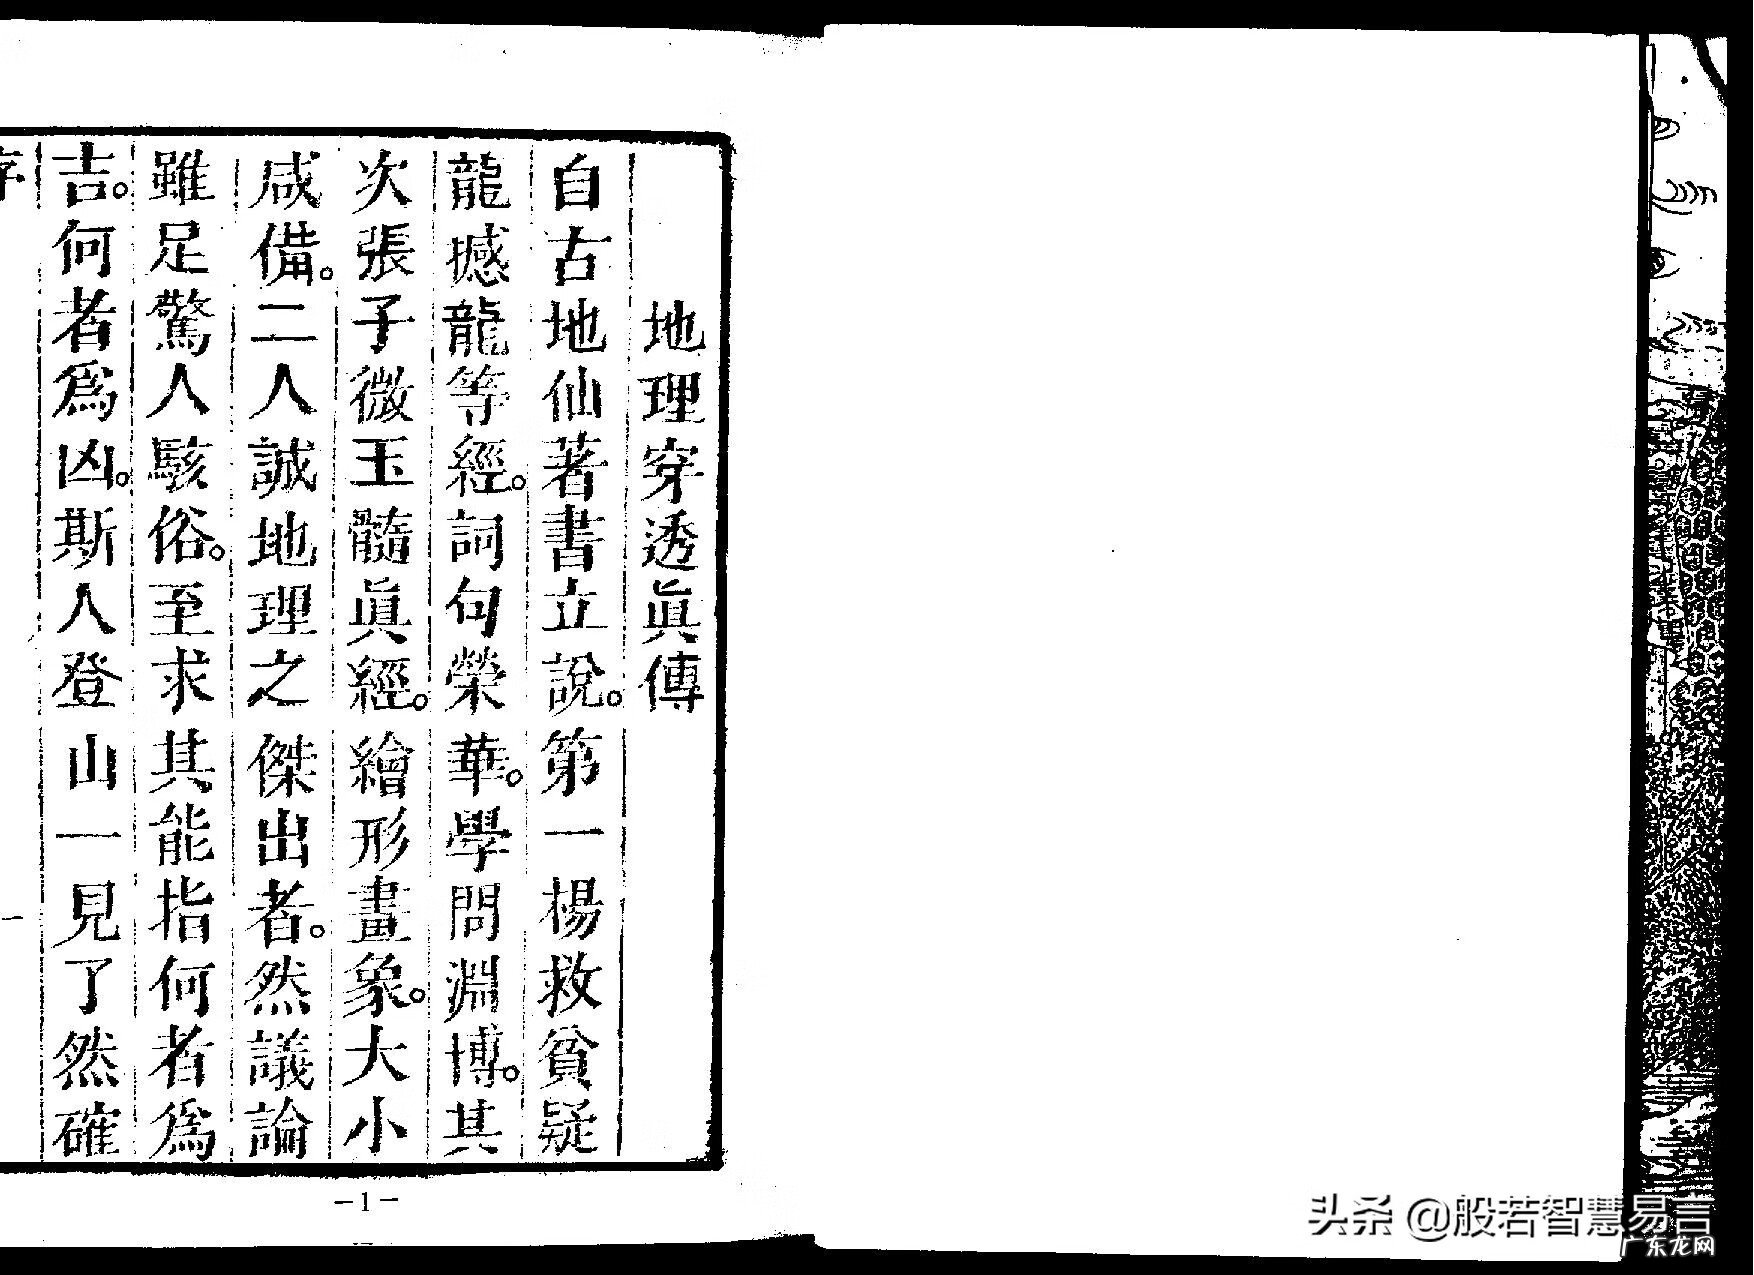 地理穿透眞傳
自古地仙著書立說。第一楊救貧疑
龍撼龍等經。詞句榮華。學問淵博。其
次張子微玉髓眞經。繪形畫象。大小
咸備。二人誠地理之傑出者。然議論
雖足驚人駭俗。至求其能指何者爲
吉。何者爲凶。斯人登山一見了然確
序
一
–1–
头条 @般若智慧易言
广东龙网